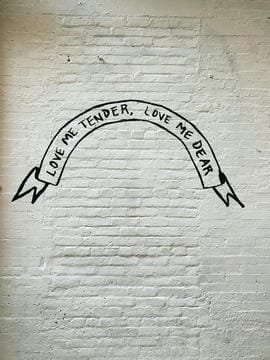 LOVE ME TENDER, LOVE ME DEAR